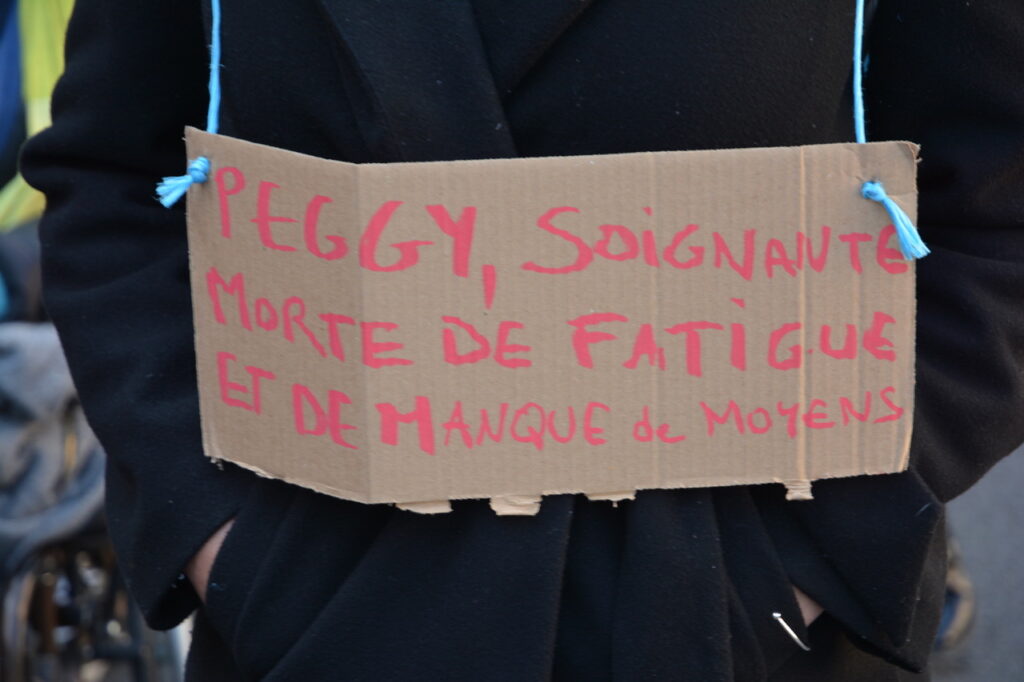 PEGGY, SOIGNANTE
MORTE DE FATIGUE
ET DE MANQUE de MOYENS